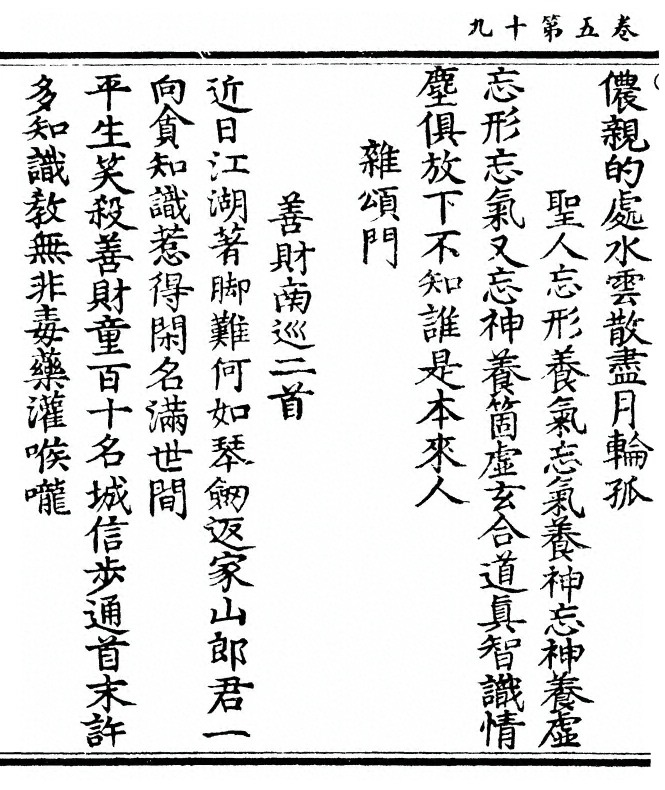 卷五第十九
儂親的處水雲散盡月輪孤
聖人忘形養氣忘氣養神忘神養虛
忘形忘氣又忘神養箇虛玄合道眞智識情
塵俱放下不知誰是本來人
雜頌門
善財南巡二首
近日江湖著脚難何如琴劒返家山郎君一
向貪知識惹得閑名滿世間
平生笑殺善財童百十名城信步通首末許
多知識教無非毒藥灌喉嚨